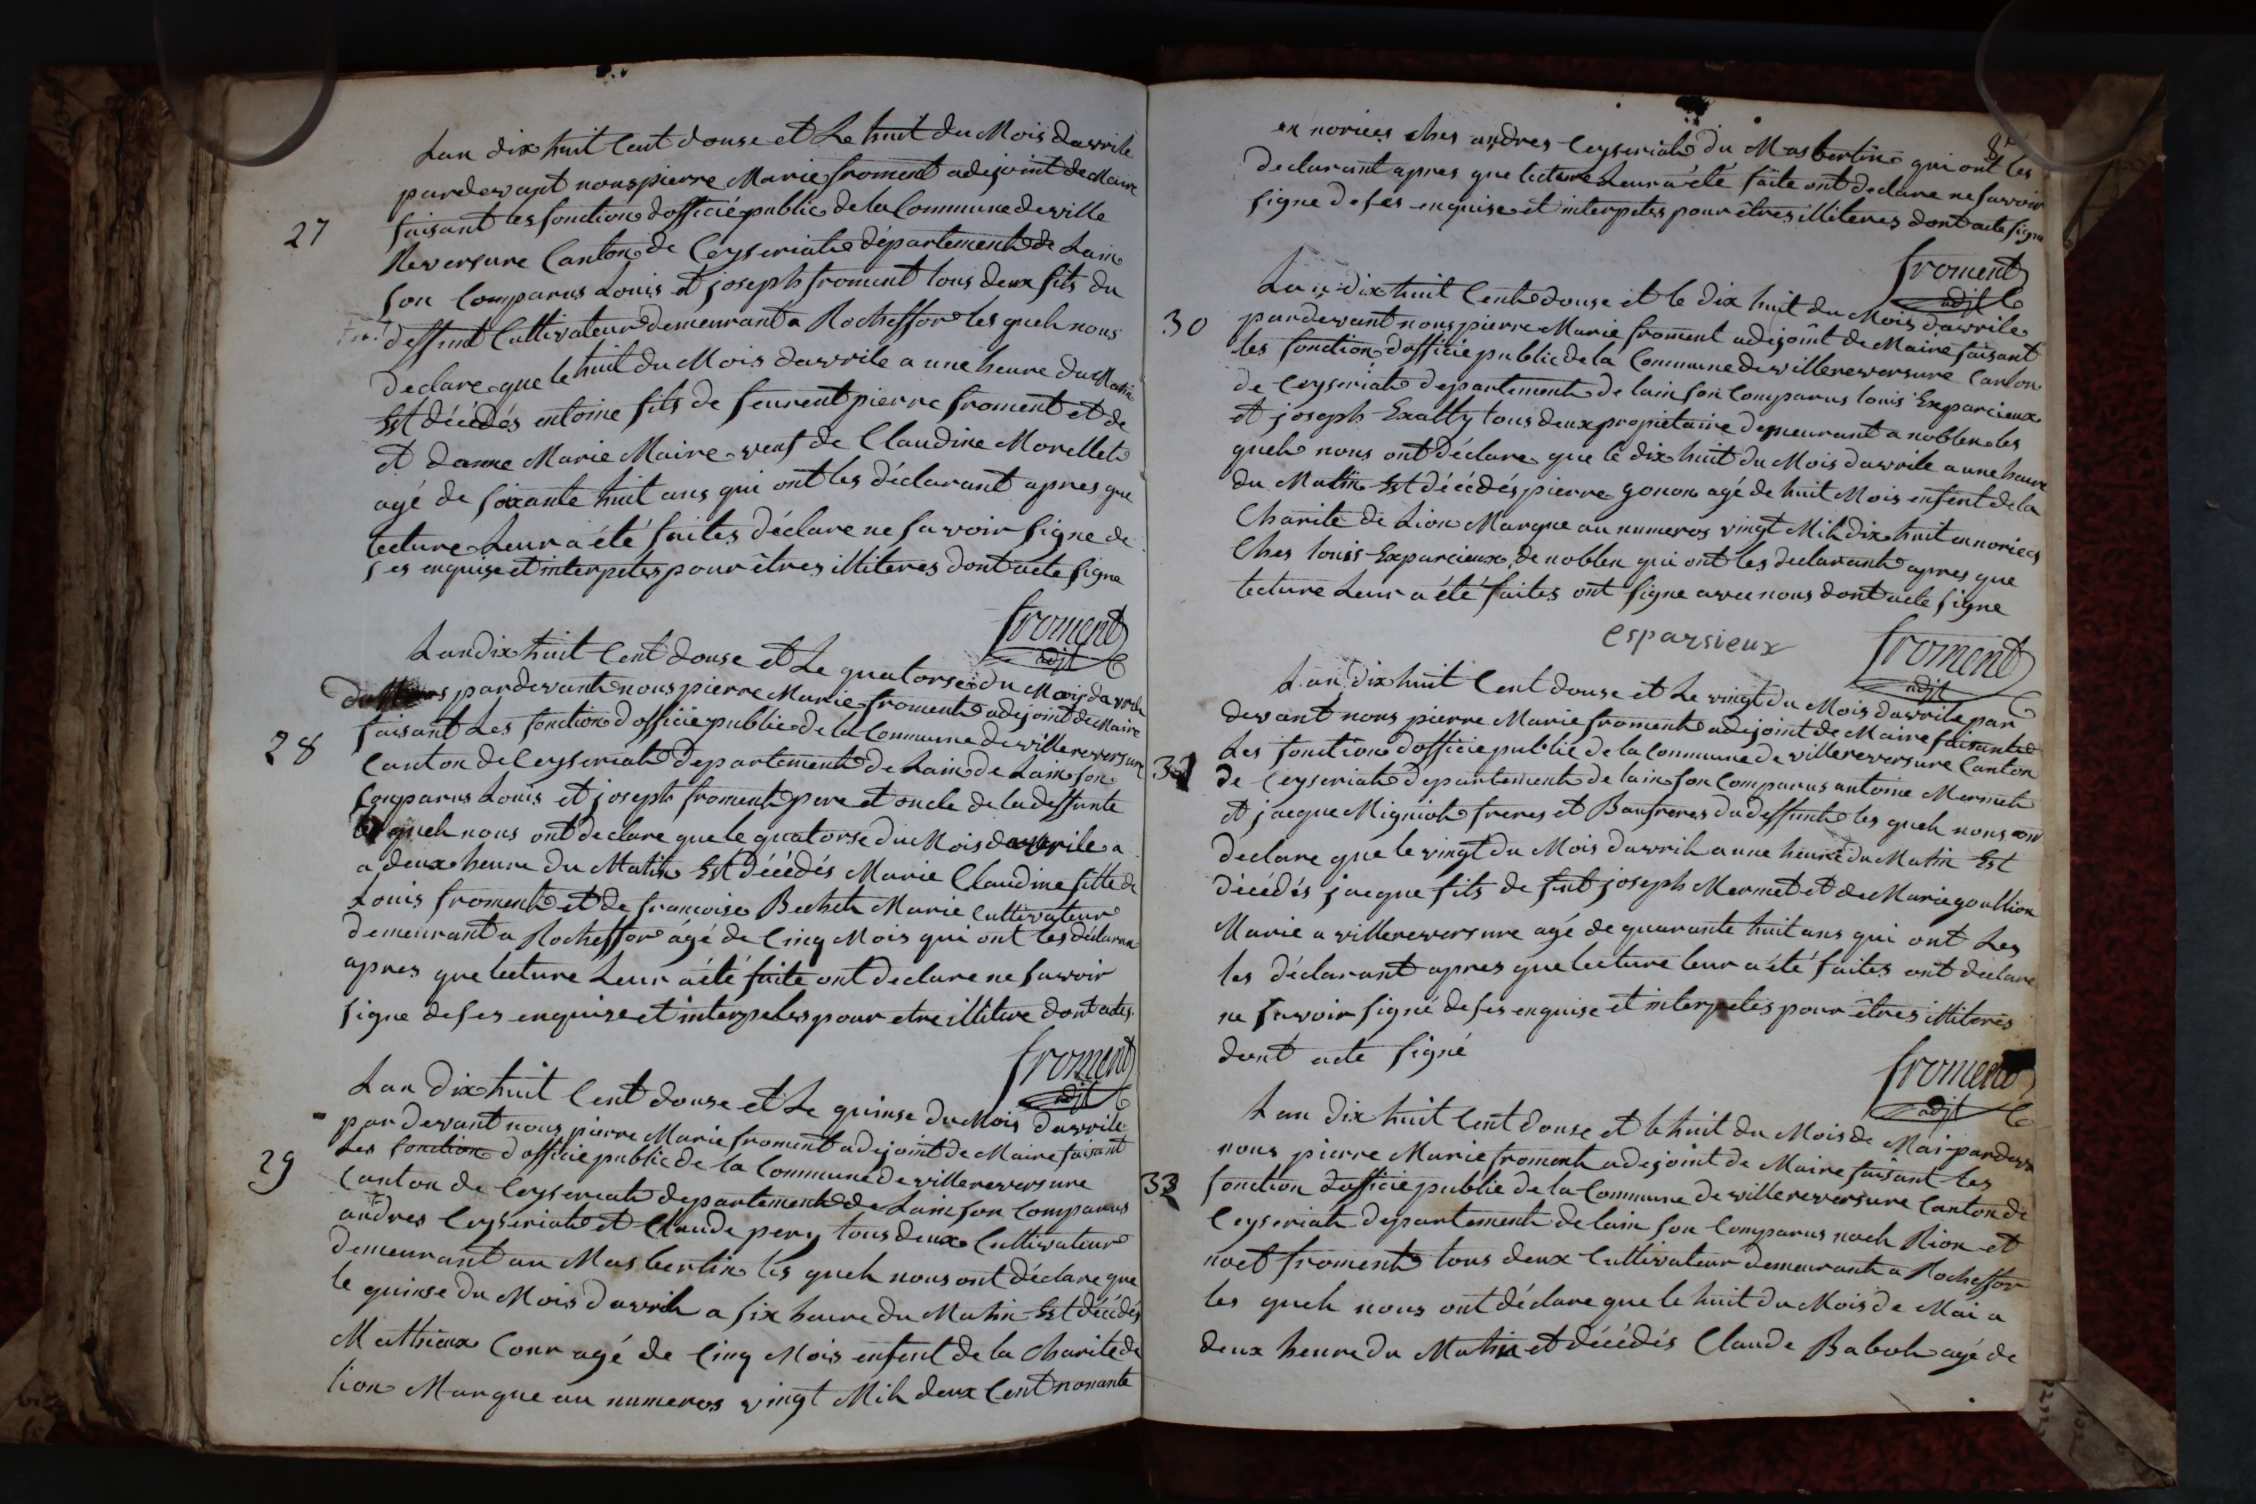 27
Lan dix huit Cent douse et Le huit du Mois davrile
pardevant nous pierre Marie froment adejoint de Maire
faisant les fonction dofficié public de la Commune de ville
Reversure Canton de Ceyseriat département de Lain
son Comparus Louis et joseph froment tous deux fils du
deffunt Cultivateur demeurant a Rocheffor les queh nous
Declare que le huit du Mois davrile a une heure du Matin
Est décédés entoine fils de feurent pierre froment et de
et danne Marie Maire veuf de Claudine Morellet
agé de soixante huit ans qui ont les déclarant apres que
lecture Leur a été faites Déclare ne savoir signe de
ses enquise et interpeles pour êtres illiteres dont acte signe
froment
adjt
28
Lan dix huit Cent douse et Le quatorse du Mois davrile
pardevant nous pierre Marie froment adejoint de Maire
faisant Les fonction dofficié public de la Commune de villereversure
Canton de Ceyseriat departement de Lain de Lain son
Conparus Louis et joseph froment pere et oncle de la deffunte
les queh nous ont declare que le quatorse du Mois davrile a
a deux heure du Matin Est décédés Marie Claudine fille de
Louis froment et de francoise Bechet Marie Cultivateur
demeurant a Rocheffor agé de Cinq Mois qui ont les déclarant
apres que lecture Leur a été faite ont declare ne savoir
signe de ses enquise et interpeles pour etre illitere dont actes
froment
adjt
29
Lan Dix huit Cent douse et Le quinse du Mois davrile
par devant nous pierre Marie froment adejoint de Maire faisant
Les fonction dofficié public de la Commune de villereversure
Canton de Ceyseriat departement de Lain son Comparus
andres Ceyseriat et Claude pery tous deux Cultivateur
demeurant au Mas bertin les queh nous ont déclare que
le quinse du Mois davrih a six heure du Matin Est décédés
Mathieux Cour agé de Cinq Mois enfent de la Charite de
lion Marque au numeros vingt Mih deux Cent nonante
en norices ches andres Ceyseriat du Mas bertin qui ont les
Declarant apres que lecture Leur a été faite ont declare ne savoir
signe de ses enquise et interpetes pour êtres illiteres dont acte signe
froment
adjt
30
Lan dix huit Cent douse et le dix huit du Mois davrile
pardevant nous pierre Marie froment adejoint de Maire faisant
les fonction dofficié public de la Commune de villereversure Canton
de Ceyseriat departement de lain son Comparus louis Exparcieux
et joseph Exalty tous deux propriétaire demeurant a noblen les
queh nous ont déclare que le dix huit du Mois davrile a une heure
du Matin Est décédés pierre gonon agé de huit Mois enfent de la
Charite de Lion Marque au numeros vingt Mih dix huit en norices
Ches louis Exparcieux de noblen qui ont les declarant apres que
lecture Leur a été faites ont signe avec nous dont acte signe
esparsieux
froment
adjt
31
Lan dix huit Cent douse et Le vingt du Mois davrile par
devant nous pierre Marie froment adejoint de Maire faisant
Les fonction dofficié public de la Commune de villereversure Canton
de Ceyseriat departement de lain son Comparus antoine Mermet
et jacque Migniot freres et Baufreres du deffunt les queh nous on
declare que le vingt du Mois davrih a une heure du Matin Est
décédés jacque fils de fut joseph Mermet et de Marie goullion
Marie a villereversure agé de quarante huit ans qui ont Les
les déclarant apres que lecture leur a été faites ont déclare
ne savoir signé de ses enquise et interpetes pour êtres illiteres
dont acte signé
froment
adjt
33
Lan dix huit Cent douse et le huit du Mois de Mai pardevan
nous pierre Marie froment adejoint de Maire faisant les
fonction dofficié public de la Commune de villereversure Canton de
Ceyseriat departement de lain son Comparus noeh Rion et
noet froment tous deux Cultivateur demeurant a Rocheffor
les queh nous ont déclare que le huit du Mois de Mai a
deux heure du Matin et décédés Claude Baboh agé de